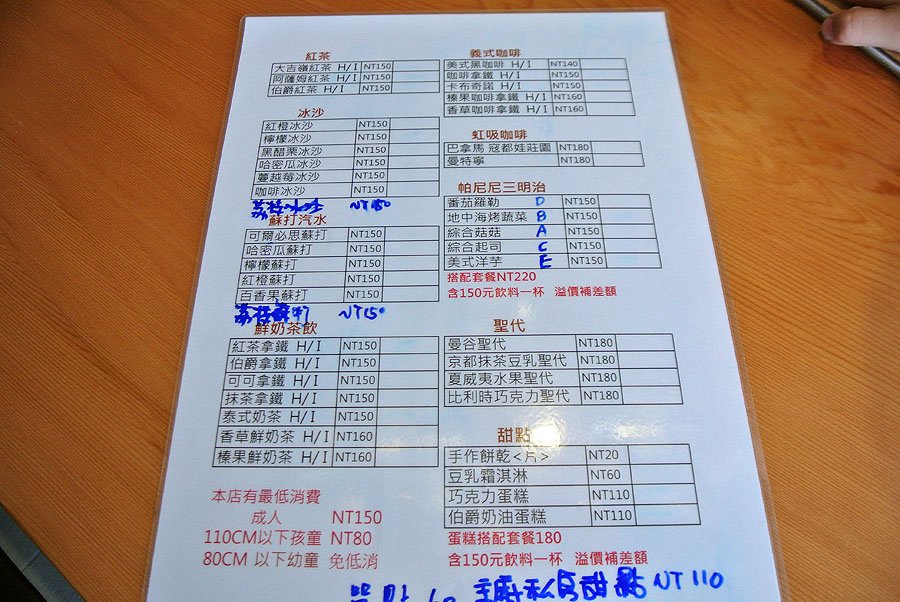 紅茶
大吉嶺紅茶 H/I NT150
阿薩姆紅茶 H/I NT150
伯爵紅茶 H/I NT150
冰沙
紅橙冰沙 NT150
檸檬冰沙 NT150
黑醋栗冰沙 NT150
哈密瓜冰沙 NT150
蔓越莓冰沙 NT150
咖啡冰沙 NT150
荔枝冰沙 NT150
蘇打汽水
可爾必思蘇打 NT150
哈密瓜蘇打 NT150
檸檬蘇打 NT150
紅橙蘇打 NT150
百香果蘇打 NT150
荔枝蘇打 NT150
鮮奶茶飲
紅茶拿鐵 H/I NT150
伯爵拿鐵 H/I NT150
可可拿鐵 H/I NT150
抹茶拿鐵 H/I NT150
泰式奶茶 H/I NT150
香草鮮奶茶 H/I NT160
榛果鮮奶茶 H/I NT160
本店有最低消費
成人 NT150
110CM以下孩童 NT80
80CM 以下幼童 免低消
義式咖啡
美式黑咖啡 H/I NT140
咖啡拿鐵 H/I NT150
卡布奇諾 H/I NT150
榛果咖啡拿鐵 H/I NT160
香草咖啡拿鐵 H/I NT160
虹吸咖啡
巴拿馬 冠都娃莊園 NT180
曼特寧 NT180
帕尼尼三明治
番茄羅勒 D NT150
地中海烤蔬菜 B NT150
綜合菇菇 A NT150
綜合起司 C NT150
美式洋芋 E NT150
搭配套餐NT220
含150元飲料一杯 溢價補差額
聖代
曼谷聖代 NT180
京都抹茶豆乳聖代 NT180
夏威夷水果聖代 NT180
比利時巧克力聖代 NT180
甜點
手作餅乾<片> NT20
豆乳霜淇淋 NT60
巧克力蛋糕 NT110
伯爵奶油蛋糕 NT110
蛋糕搭配套餐180
含150元飲料一杯 溢價補差額
私房甜點 NT110